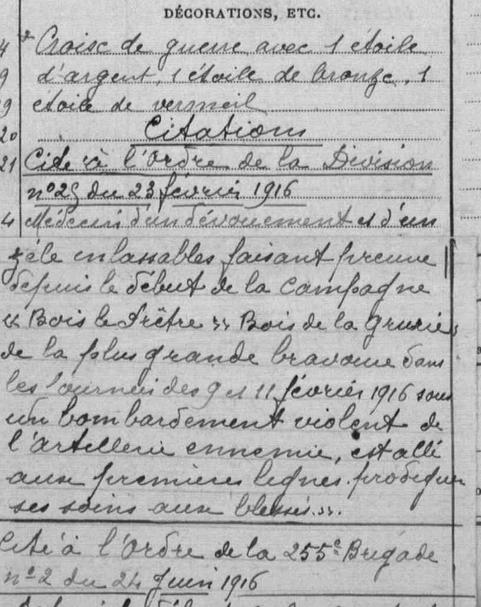 DÉCORATIONS, ETC.
4 * Croix de guerre avec 1 étoile
9 d'argent, 1 étoile de bronze, 1
29 étoile de vermeil
20 Citations
21 Cité à l'Ordre de la Division
n°29 du 23 février 1916
4 Médecin d'un dévouement et d'un
zèle inlassables faisant preuve
depuis le début de la campagne
"Bois le Prêtre" Bois de la Grurie
de la plus grande bravoure dans
les journées des 9 et 11 février 1916 sous
un bombardement violent de
l'artillerie ennemie, est allé
aux premières lignes prodiguer
ses soins aux blessés.".
Cité à l'Ordre de la 255e Brigade
n°2 du 24 Juin 1916